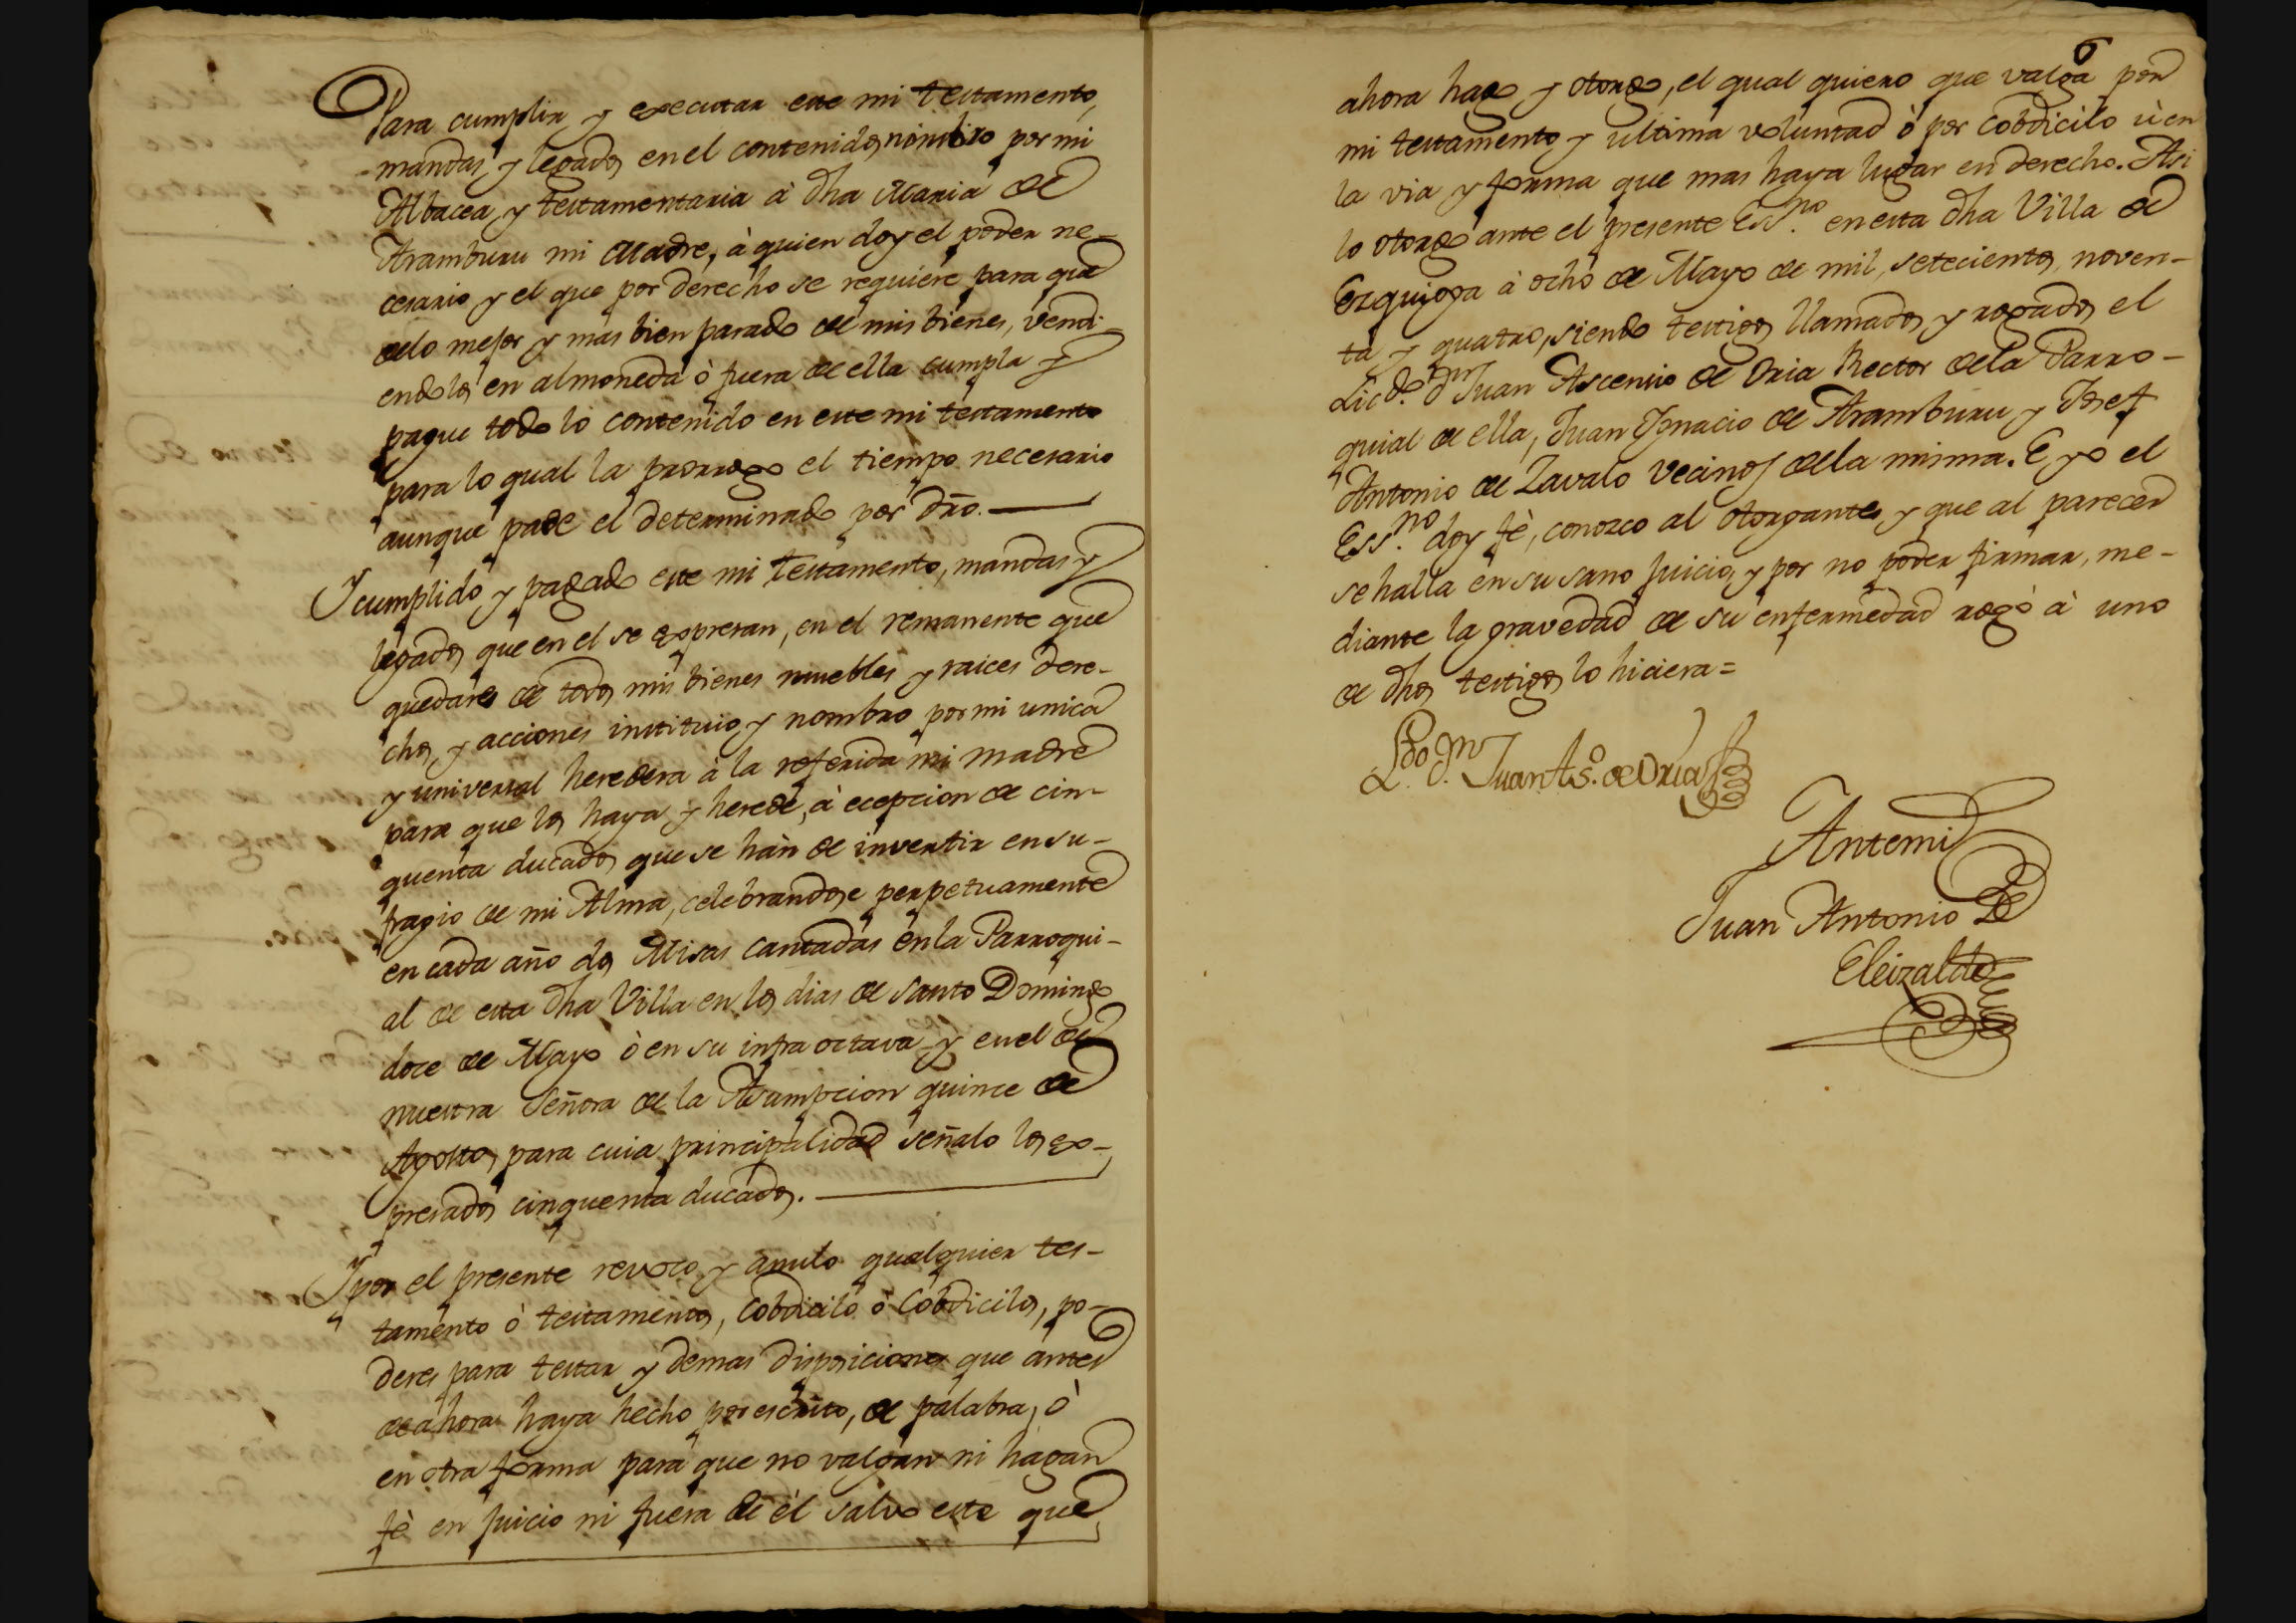 Para cumplir y executar este mi testamento,
mandas, y legados en el contenidos nombro por mi
Albacea, y testamentaria à dha Maria de
Aramburu mi Madre, à quien doy el poder ne-
cesario, y el que por derecho se requiere para que
de lo mejor y mas bien parado de mis bienes, vendi-
endolos en almoneda ò fuera de ella cumpla y
pague todo lo contenido en este mi testamento
para lo qual la prorrogo el tiempo necesario
aunque pase el determinado por dro.
Y cumplido y pagado este mi testamento, mandas y
legados que en el se expresan, en el remanente que
quedare de todos mis bienes muebles y raices dere-
chos, y acciones instituio, y nombro por mi unica
y universal heredera à la referida mi madre
para que los haya y herede, à ecepcion de cin-
quenta ducados que se hàn de invertir en su-
fragio de mi Alma, celebrandose perpetuamente
en cada año dos Misas cantadas en la Parroqui-
al de esta dha Villa en los dias de Santo Domingo
doce de Mayo ò en su infra octava y en el de
nuestra Señora de la Asumpcion quince de
Agosto, para cuia principalidad señalo los ex-
presados cinquenta ducados.
Y por el presente revoco, y anulo qualquier tes-
tamento ò testamentos, Cobdicilo ò Cobdicilos, po-
deres para testar y demas disposiciones que antes
de ahora haya hecho por escrito, de palabra, ò
en otra forma para que no valgan ni hagan
fè en juicio ni fuera de èl salvo este que
6
ahora hago y otorgo, el qual quiero que valga por
mi testamento, y ultima voluntad ò por Cobdicilo ù en
la via y forma que mas haya lugar en derecho. Asi
lo otorgo ante el presente Ess.no en esta dha Villa de
Ezquioga à ocho de Mayo de mil, setecientos, noven-
ta y quatro, siendo testigos llamados y rogados el
Licdo. Dn Juan Ascensio de Oria Rector de la Parro-
quial de ella, Juan Ygnacio de Aramburu y Josef
Antonio de Zavalo vecinos de la misma. E yo el
Ess.no doy fè, conozco al otorgante, y que al parecer
se halla en su sano juicio, y por no poder firmar, me-
diante la gravedad de su enfermedad rogò à uno
de dhos testigos lo hiciera=
Ldo. Dn. Juan As.o de Oria
Antemi
Juan Antonio De
Eleizalde